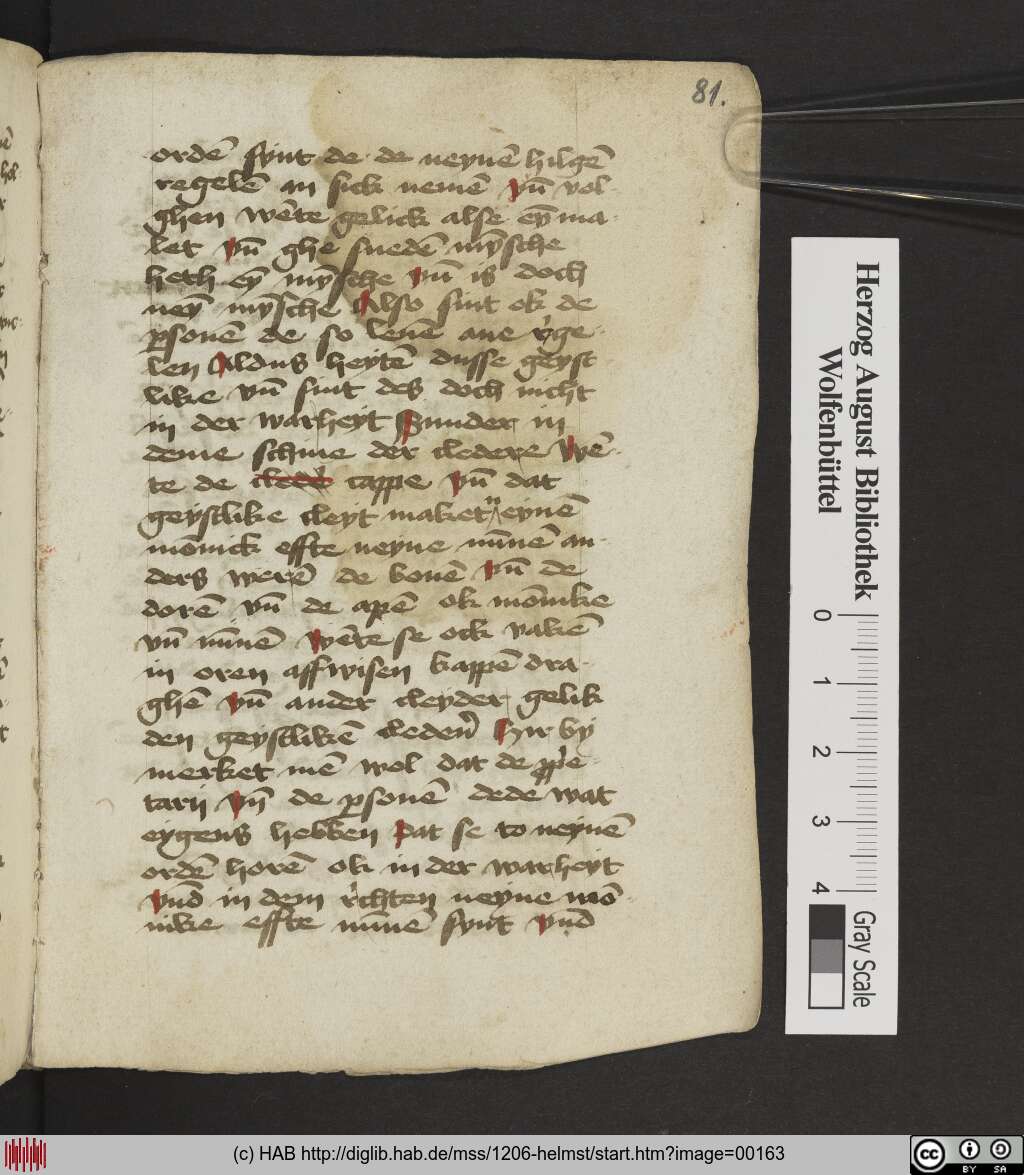 81.
ordē synt de de neynē hilgē
regelē an sick nemē vn̄ vol
ghen wēte gelick alse eȳ ma
let vn̄ ghe snedē mȳsche
heth eȳ mȳsche vn̄ is doch
neȳ mȳsche Also sint ok de
ꝑsonē de so leuē ane r̉ge
len Aldus heytē dusse geyst
like vn̄ sint des doch nicht
in der warheyt Sunder in
deme schine der cledere wē
te de cappe vn̄ dat
geystlike cleyt maket n eynē
monnick effte neyne nūnē an
ders werē de bouē vn̄ de
dorē vn̄ de apē ok mōnike
vn̄ nūnē wēte se ock vakē
in oren affwisen kappē dra
ghē vn̄ ander cleyder gelik
den geystlikē cleden̉ Hir by
merket mē wol dat de ꝓp̉e
tarij vn̄ de ꝑsonē dede wat
eygens hebben Dat se to neynē
ordē horē ok in der warheyt
vn̄d in dem r̉chten neyne mō
nike effte nūnē synt vn̄d
Herzog August Bibliothek
Wolfenbüttel
0 1 2 3 4
Gray Scale
(c) HAB http://diglib.hab.de/mss/1206-helmst/start.htm?image=00163
cc BY SA